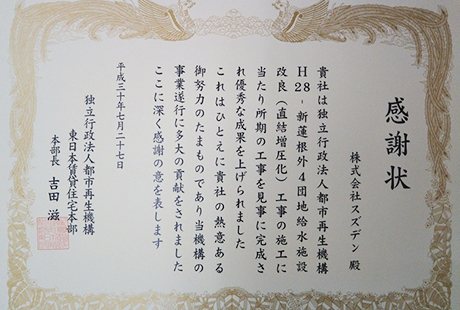 感謝状
株式会社スズデン 殿
貴社は独立行政法人都市再生機構
H28-新蓮根外4団地給水施設
改良（直結増圧化）工事の施工に
当たり所期の工事を見事に完成さ
れ優秀な成果を上げられました
これはひとえに貴社の熱意ある
御努力のたまものであり当機構の
事業遂行に多大の貢献をされました
ここに深く感謝の意を表します
平成三十年七月二十七日
独立行政法人都市再生機構
東日本賃貸住宅本部
本部長 吉田 滋